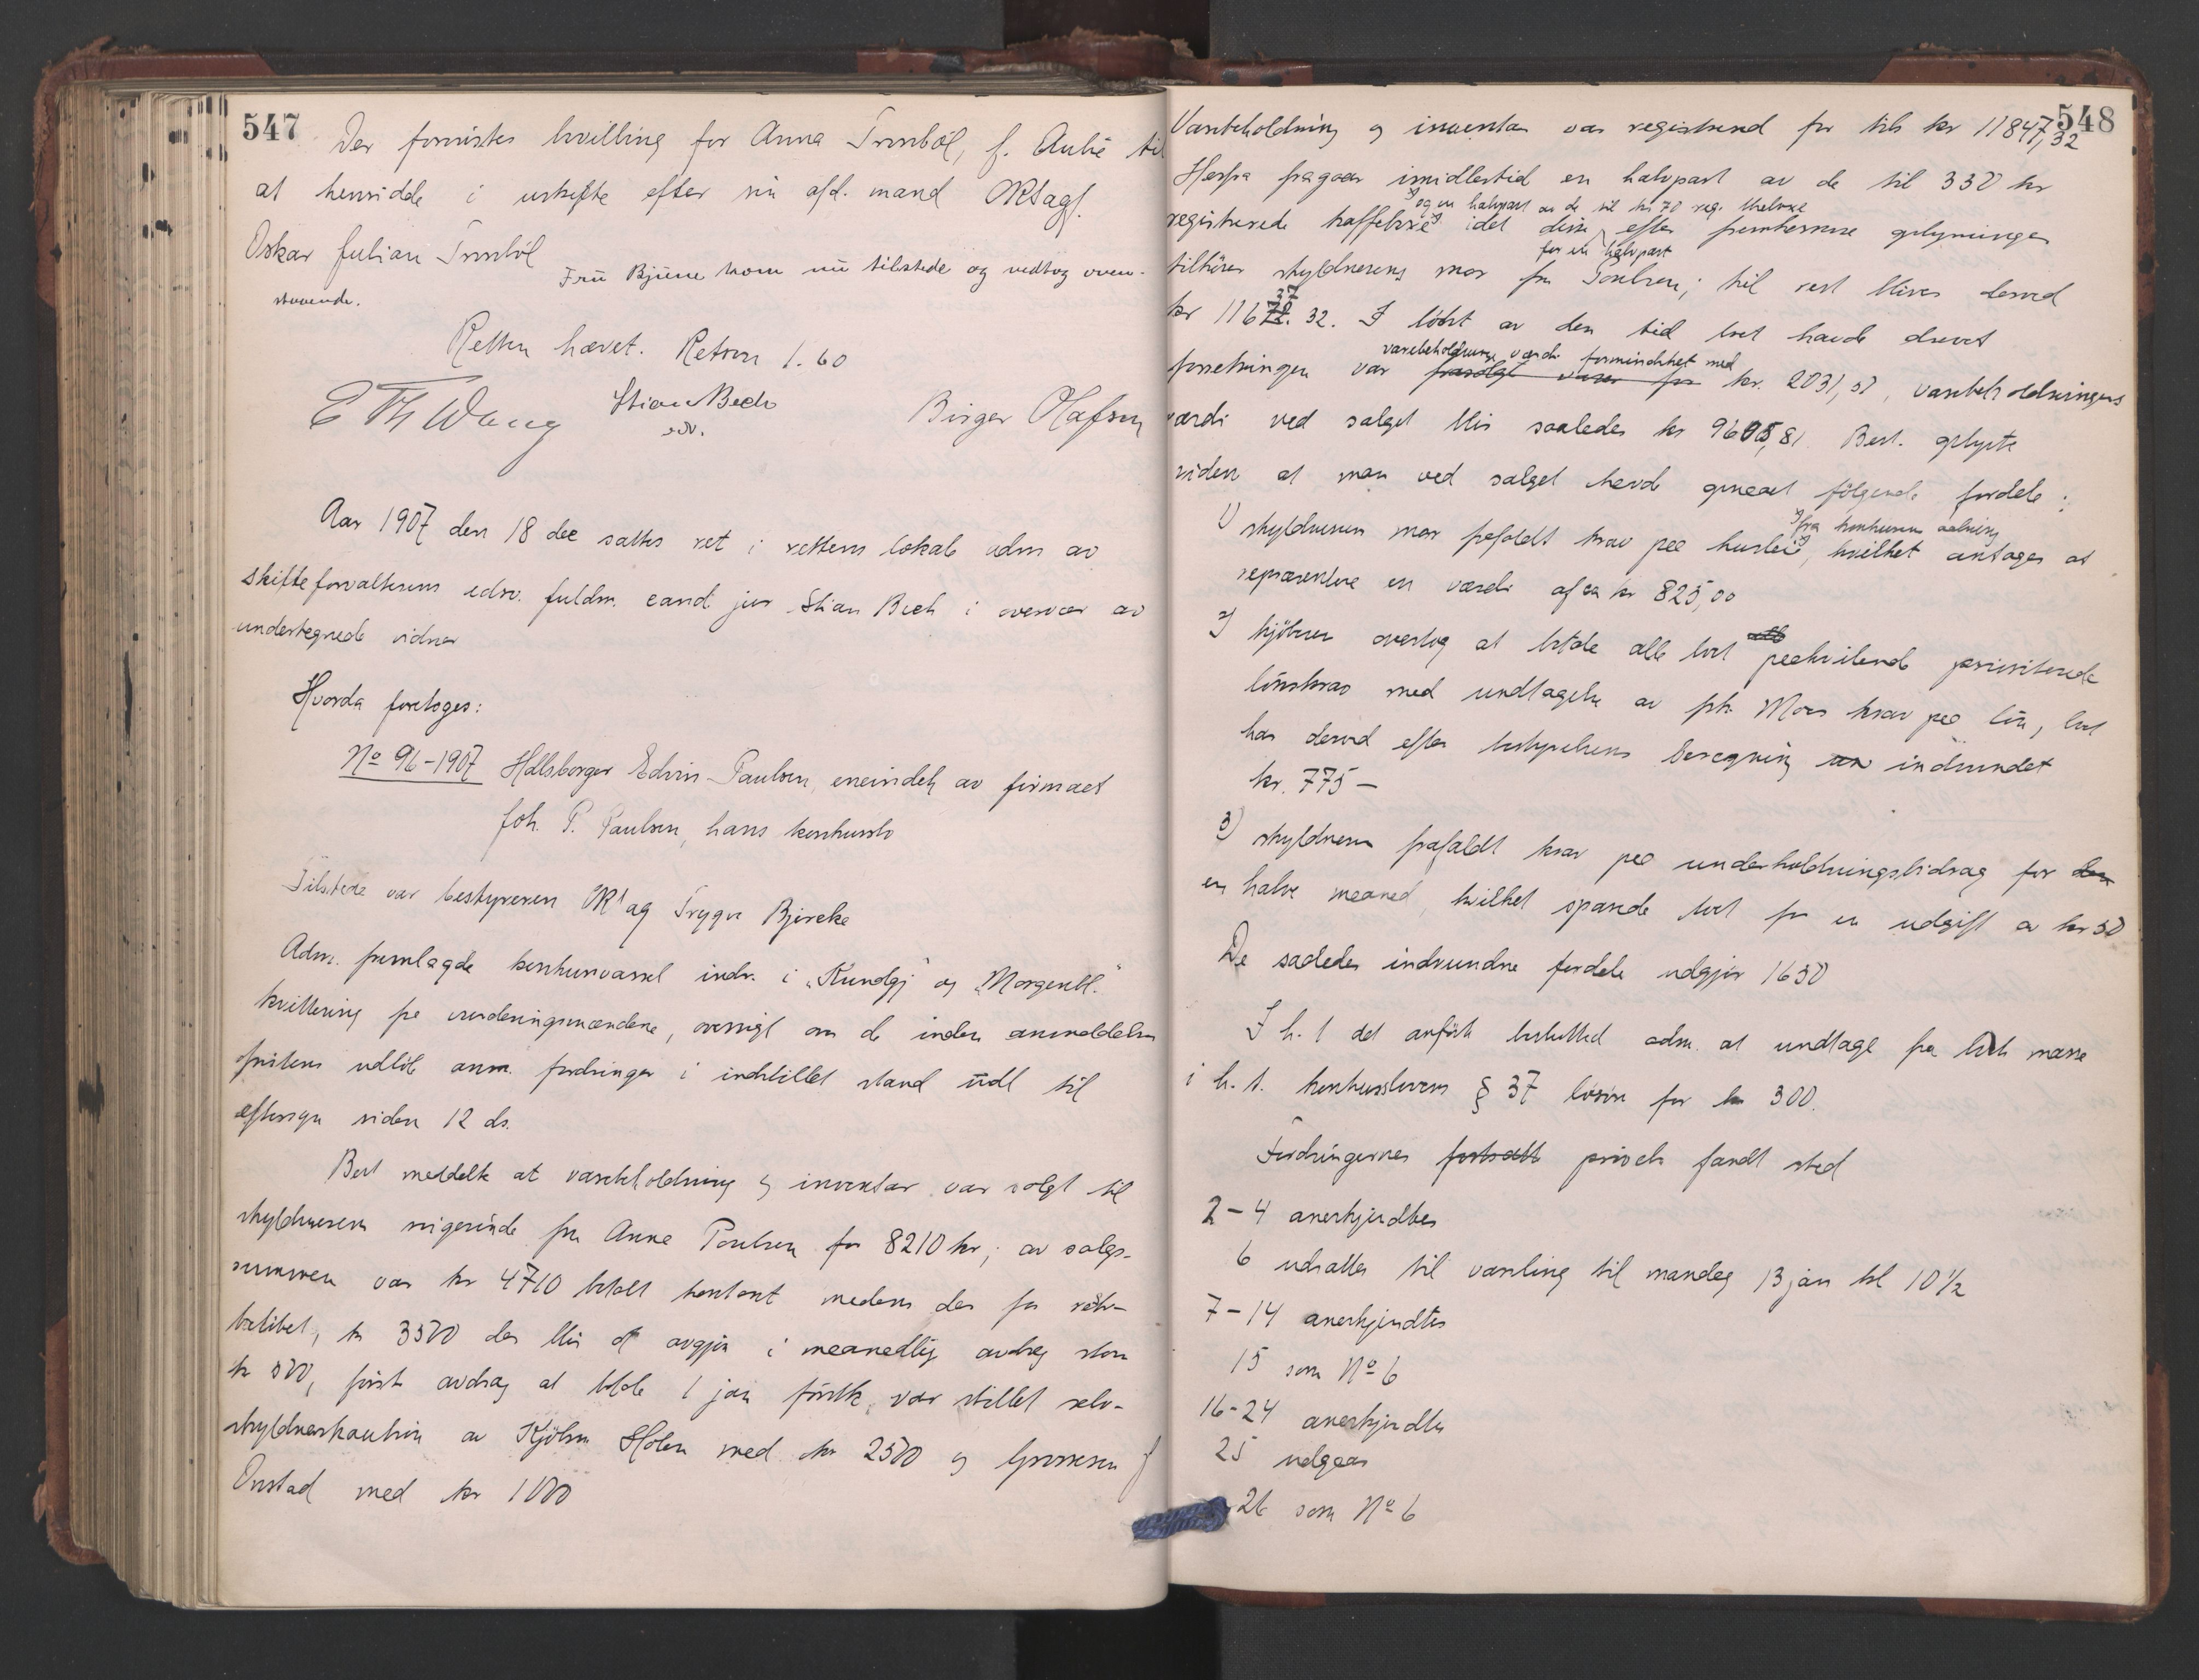 547
Der forevistes bevilling for Anna Tronböl, f. Aubé til
at hensidde i uskifte efter sin afd. mand ORsagf.
Oskar Julian Tronböl
Fru Bjune kom nu tilstede og vedtog oven-
staaende.
Retten hævet. Retsen 1.60
E Th Wang Stian Bech Birger Olafsen
edv.
Aar 1907 den 18 dec sattes ret i rettens lokale adm av
skifteforvalterens edsv. fuldm. cand. jur Stian Bech i overvær av
undertegnede vidner
Hvorda foretoges:
No 96-1907 Hdlsborger Edvin Paulsen, eneindeh av firmaet
Joh. P. Paulsen, hans konkursbo
Tilstede var bestyreren ORsag Trygve Bjercke
Adm. fremlagde konkursvarsel indr. i "Kundgj" og "Morgenbl."
kvittering fra vurderingsmændene, oversigt om de inden anmeldelses
fristens udlöb anm. fordringer i indstillet stand udl til
eftersyn siden 12 ds.
Best meddelte at varebeholdning og inventar var solgt til
skyldnerens svigerinde fru Anna Poulsen for 8210 kr; av salgs-
summen var kr 4710 betalt kontant medens der for rest-
beløbet, kr 3500 der blir at avgjøre i maanedlig avdrag stor
kr 500, første avdrag at betale 1 jan førstk. var stillet selv-
skyldnerkaution av Kjöbm Holen med kr 2500 og Grosserer J
Onstad med kr 1000
548
Varebeholdning og inventar var registrered for tils kr 11847,32
Herfra fragaar imidlertid en halvpart av de til 330 kr
og en halvpart av de til kr 70 reg. thebokse
registrerede kaffebokse idet disse efter fremkomne oplysninger
for en halvpart
tilhörer skyldnerens mor fru Poulsen; til rest blives derved
37
kr 11672.32. I löbet av den tid boet havde drevet
varebeholdningens værdi formindsket med
forretningen var frasolgt varer for kr. 2031,51, varebeholdningens
værdi ved salget blir saaledes kr 9605,81. Best. oplyste
viden at man ved salget havde opnaaet fölgende fordele:
fra konkursens aabning
1) skyldnerens mor frafaldt krav paa husleie, hvilket antages at
repræsentere en værdi af ca kr 825,00
2) kjöberen overtog at betale alle boet paahvilende prioriterede
lönskrav med undtagelse av frk. Moes krav paa lön, boet
har derved efter bestyrelsens beregning indvundet
kr. 775 —
3) skyldneren frafaldt krav paa underholdningsbidrag for den
en halve maaned, hvilket sparede boet for en udgift av kr 50
De saaledes indvundne fordele udgjör 1650
I h. t det anförte besluttet adm. at undtage fra boets masse
i h. t. konkurslovens § 37 lösöre for kr 300.
Fordringernes fortsatte prövelse fandt sted
2-4 anerkjendtes
6 udsattes til varsling til mandag 13 jan kl 10½
7-14 anerkjendtes
15 som No 6
16-24 anerkjendtes
25 udgaar
26 som No 6